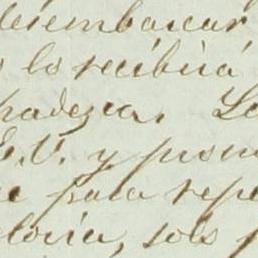 desembarcar
lo recibirá
padezca. Lo
E.V. y pron
para repe
loria, solo p